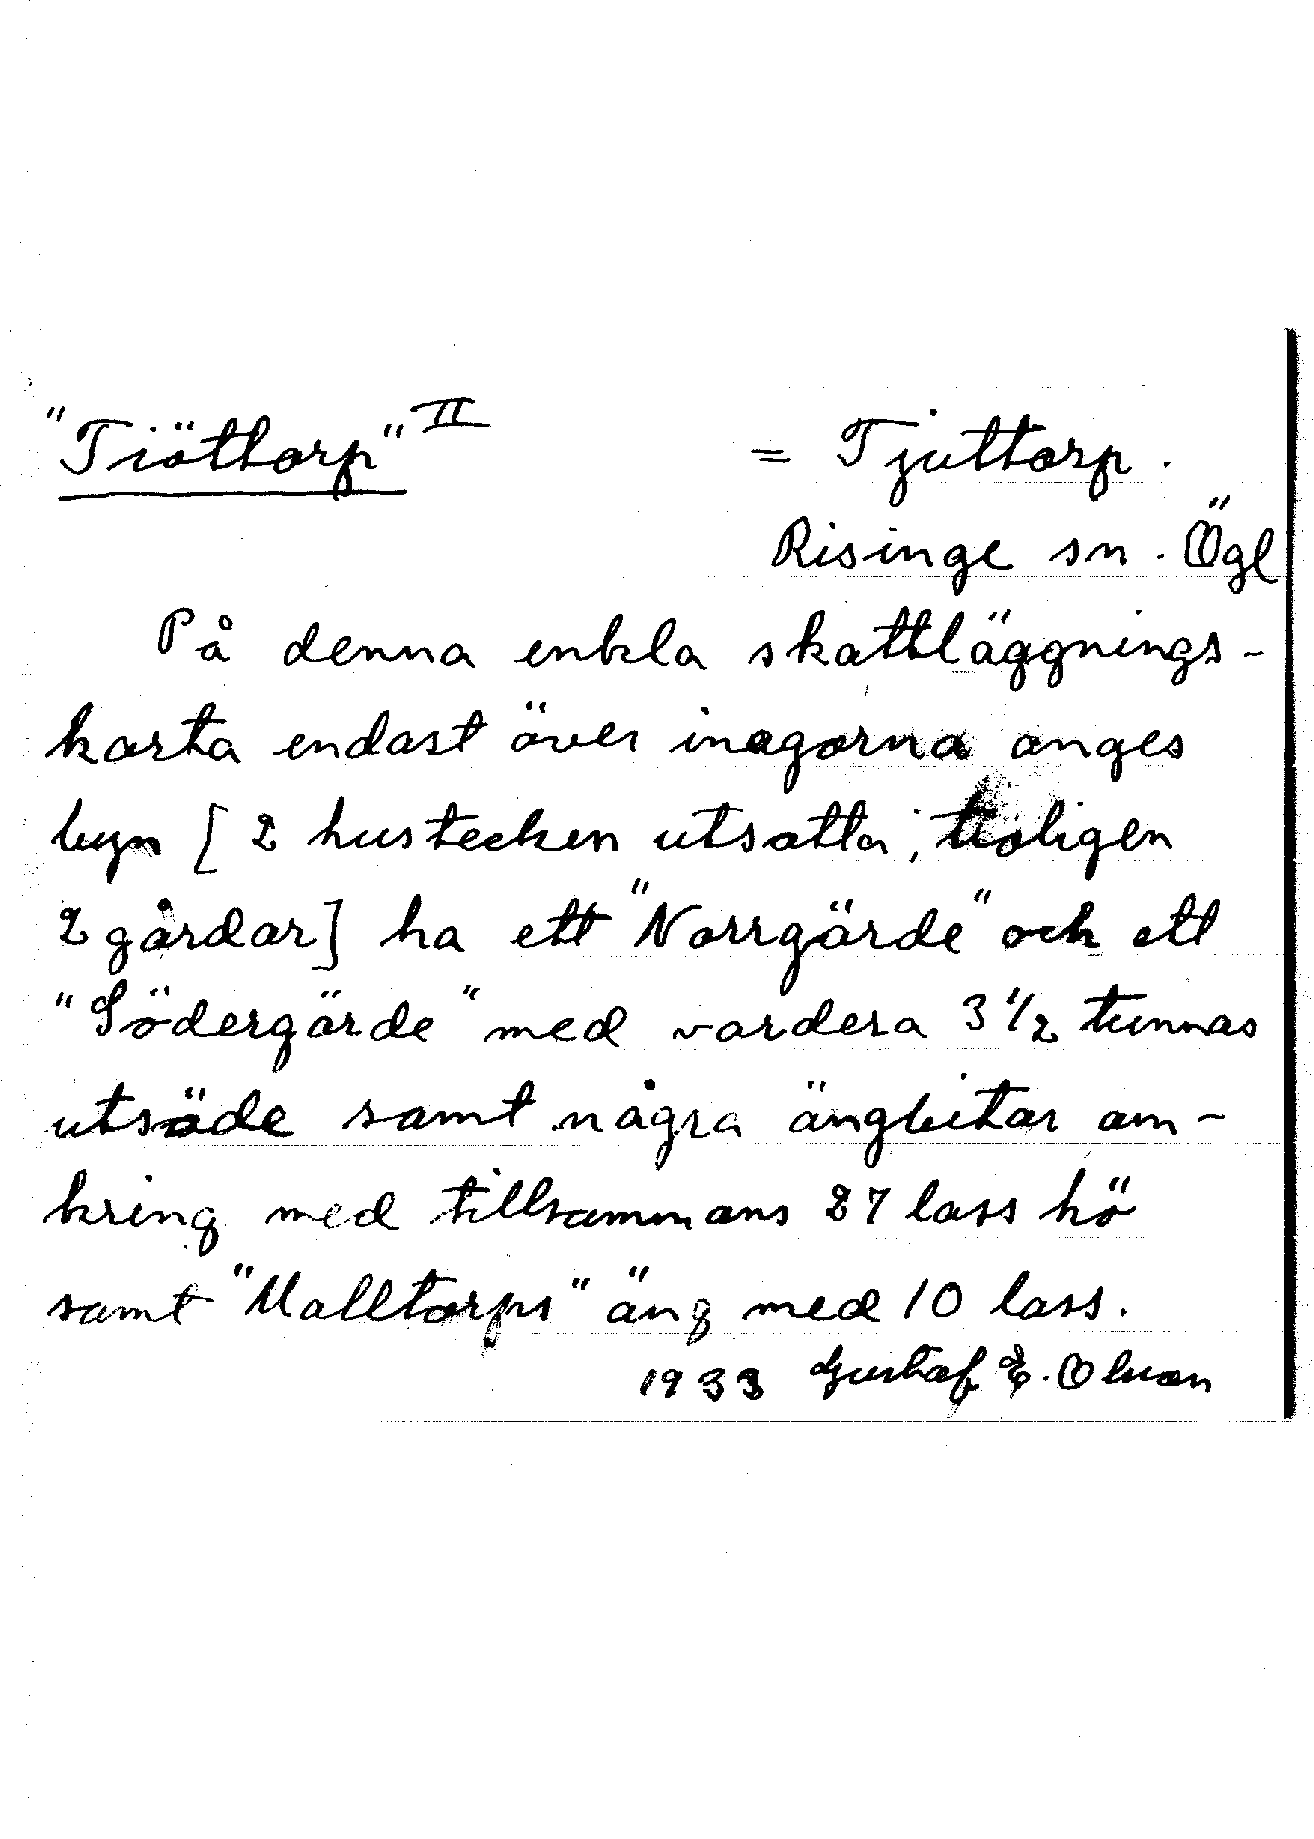 "Tiöttorp" II = Tjuttorp.
Risinge sn. Ögl
På denna enkla skattläggnings-
karta endast över inägorna anges
byn [2 hustecken utsatta, troligen
2 gårdar] ha ett "Norrgärde" och ett
"Södergärde" med vardera 3 1/2 tunnas
utsäde samt några ängbitar om-
kring med tillsammans 27 lass hö
samt "Malltorps" äng med 10 lass.
1933 Gustaf E. Olsson